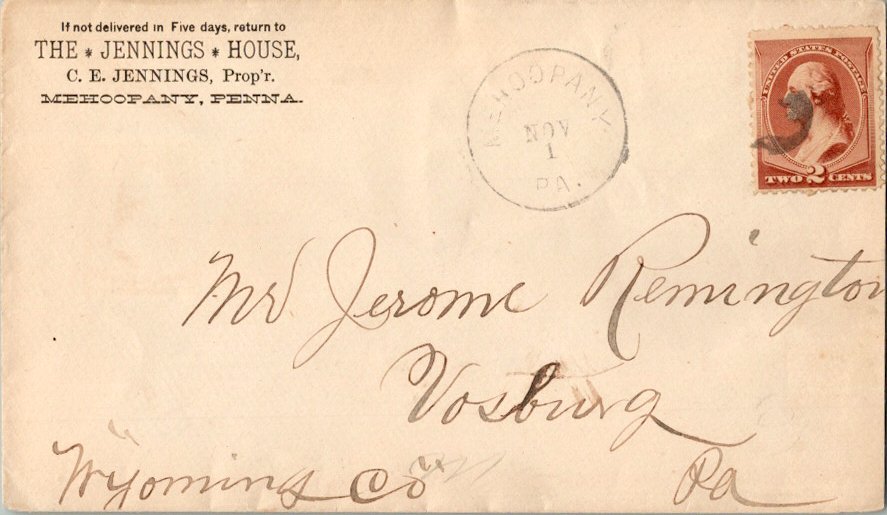 If not delivered in Five days, return to
THE * JENNINGS * HOUSE,
C. E. JENNINGS, Prop'r.
MEHOOPANY, PENNA.
MEHOOPANY
NOV
1
PA.
UNITED STATES POSTAGE
TWO 2 CENTS
Mr. Jerome Remington
Vosburg
Wyoming Co Pa